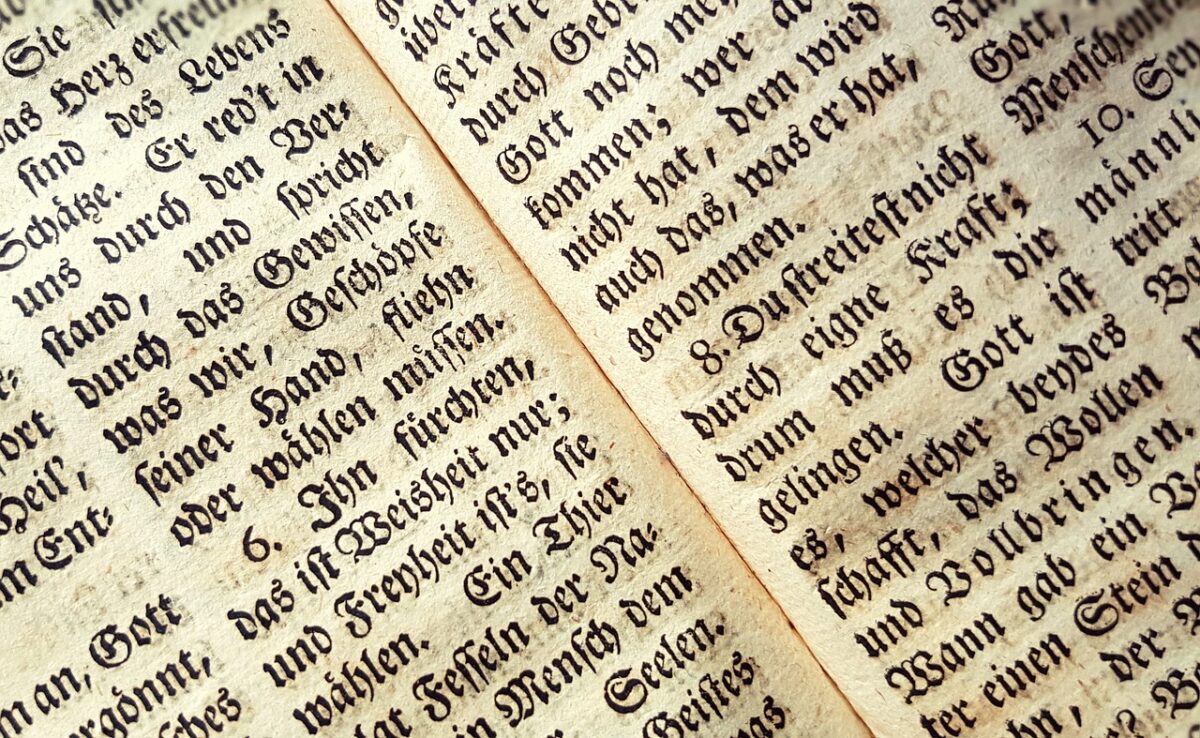 Sie
das Herz erfreun
sind des Lebens
Schätze. Er red't in
uns durch den Ver-
stand, und spricht
durch das Gewissen,
was wir, Geschöpfe
seiner Hand, fliehn
oder wählen müssen.
6. Ihn fürchten,
das ist Weisheit nur;
und Freyheit ist's, sie
wählen. Ein Thier
Fesseln der Na-
Mensch dem
Seelen.
Geistes
Heil,
Ent-
an, Gott
Kräfte
durch
Gott noch
kommen; wer
nicht hat, dem wird
auch das, was er hat,
genommen.
8. Du streitest nicht
durch eigne Kraft;
drum muß es dir
gelingen. Gott ist
es, welcher beydes
schafft, das Wollen
und Vollbringen.
Wann gab ein
einen Stein
der
Gott,
10.
tritt